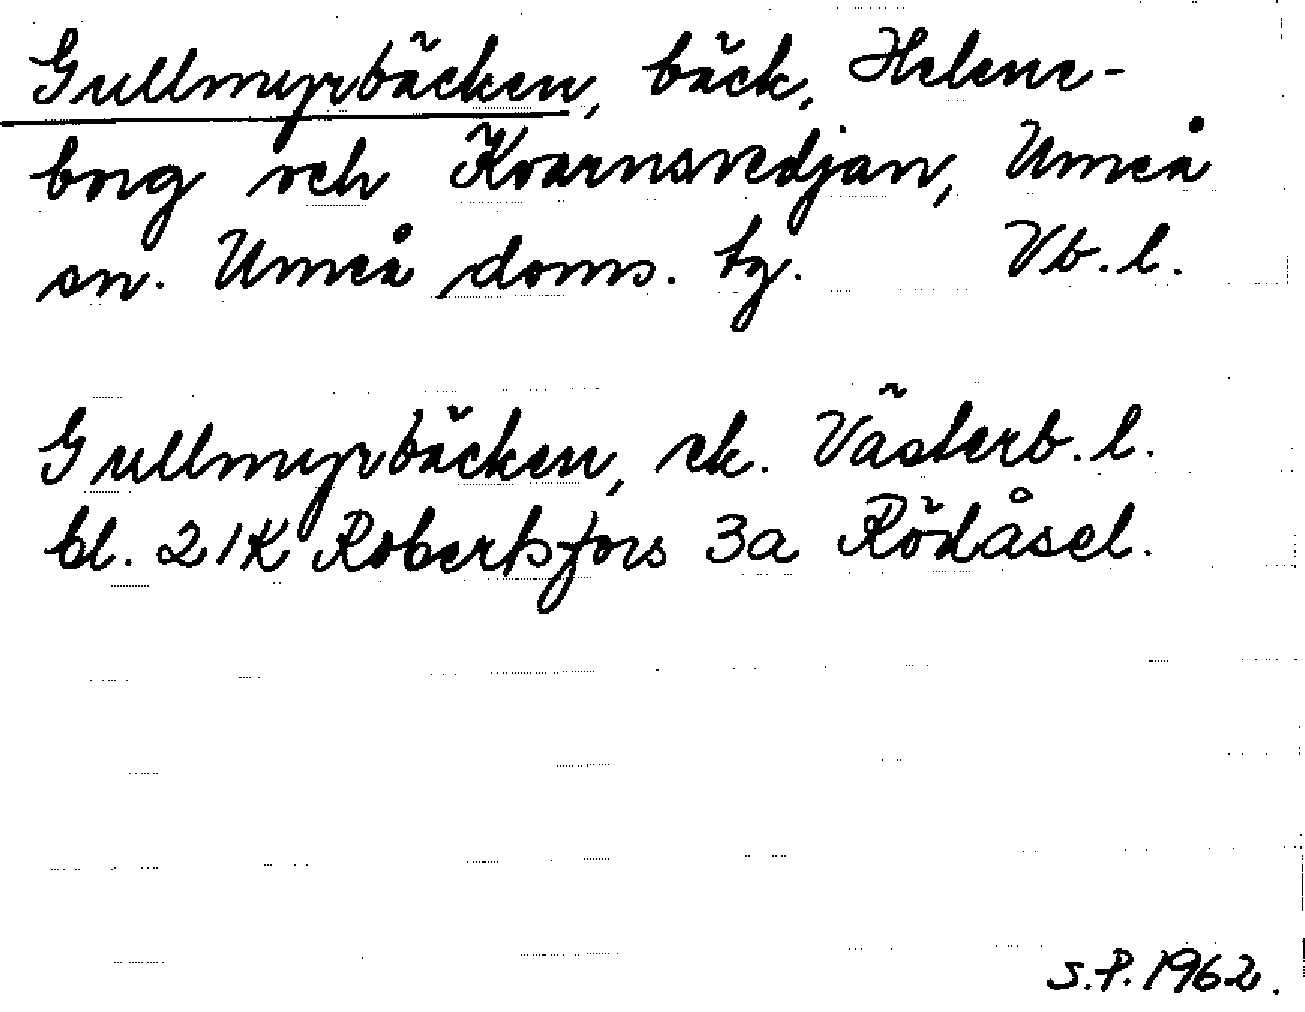 Gullmyrbäcken, bäck, Helene-
borg och Kvarnsvedjan, Umeå
sn. Umeå doms. tg. Vb. l.
Gullmyrbäcken, ek. Västerb. l.
bl. 21K Robertsfors 3a Rödåsel.
S.P. 1962.